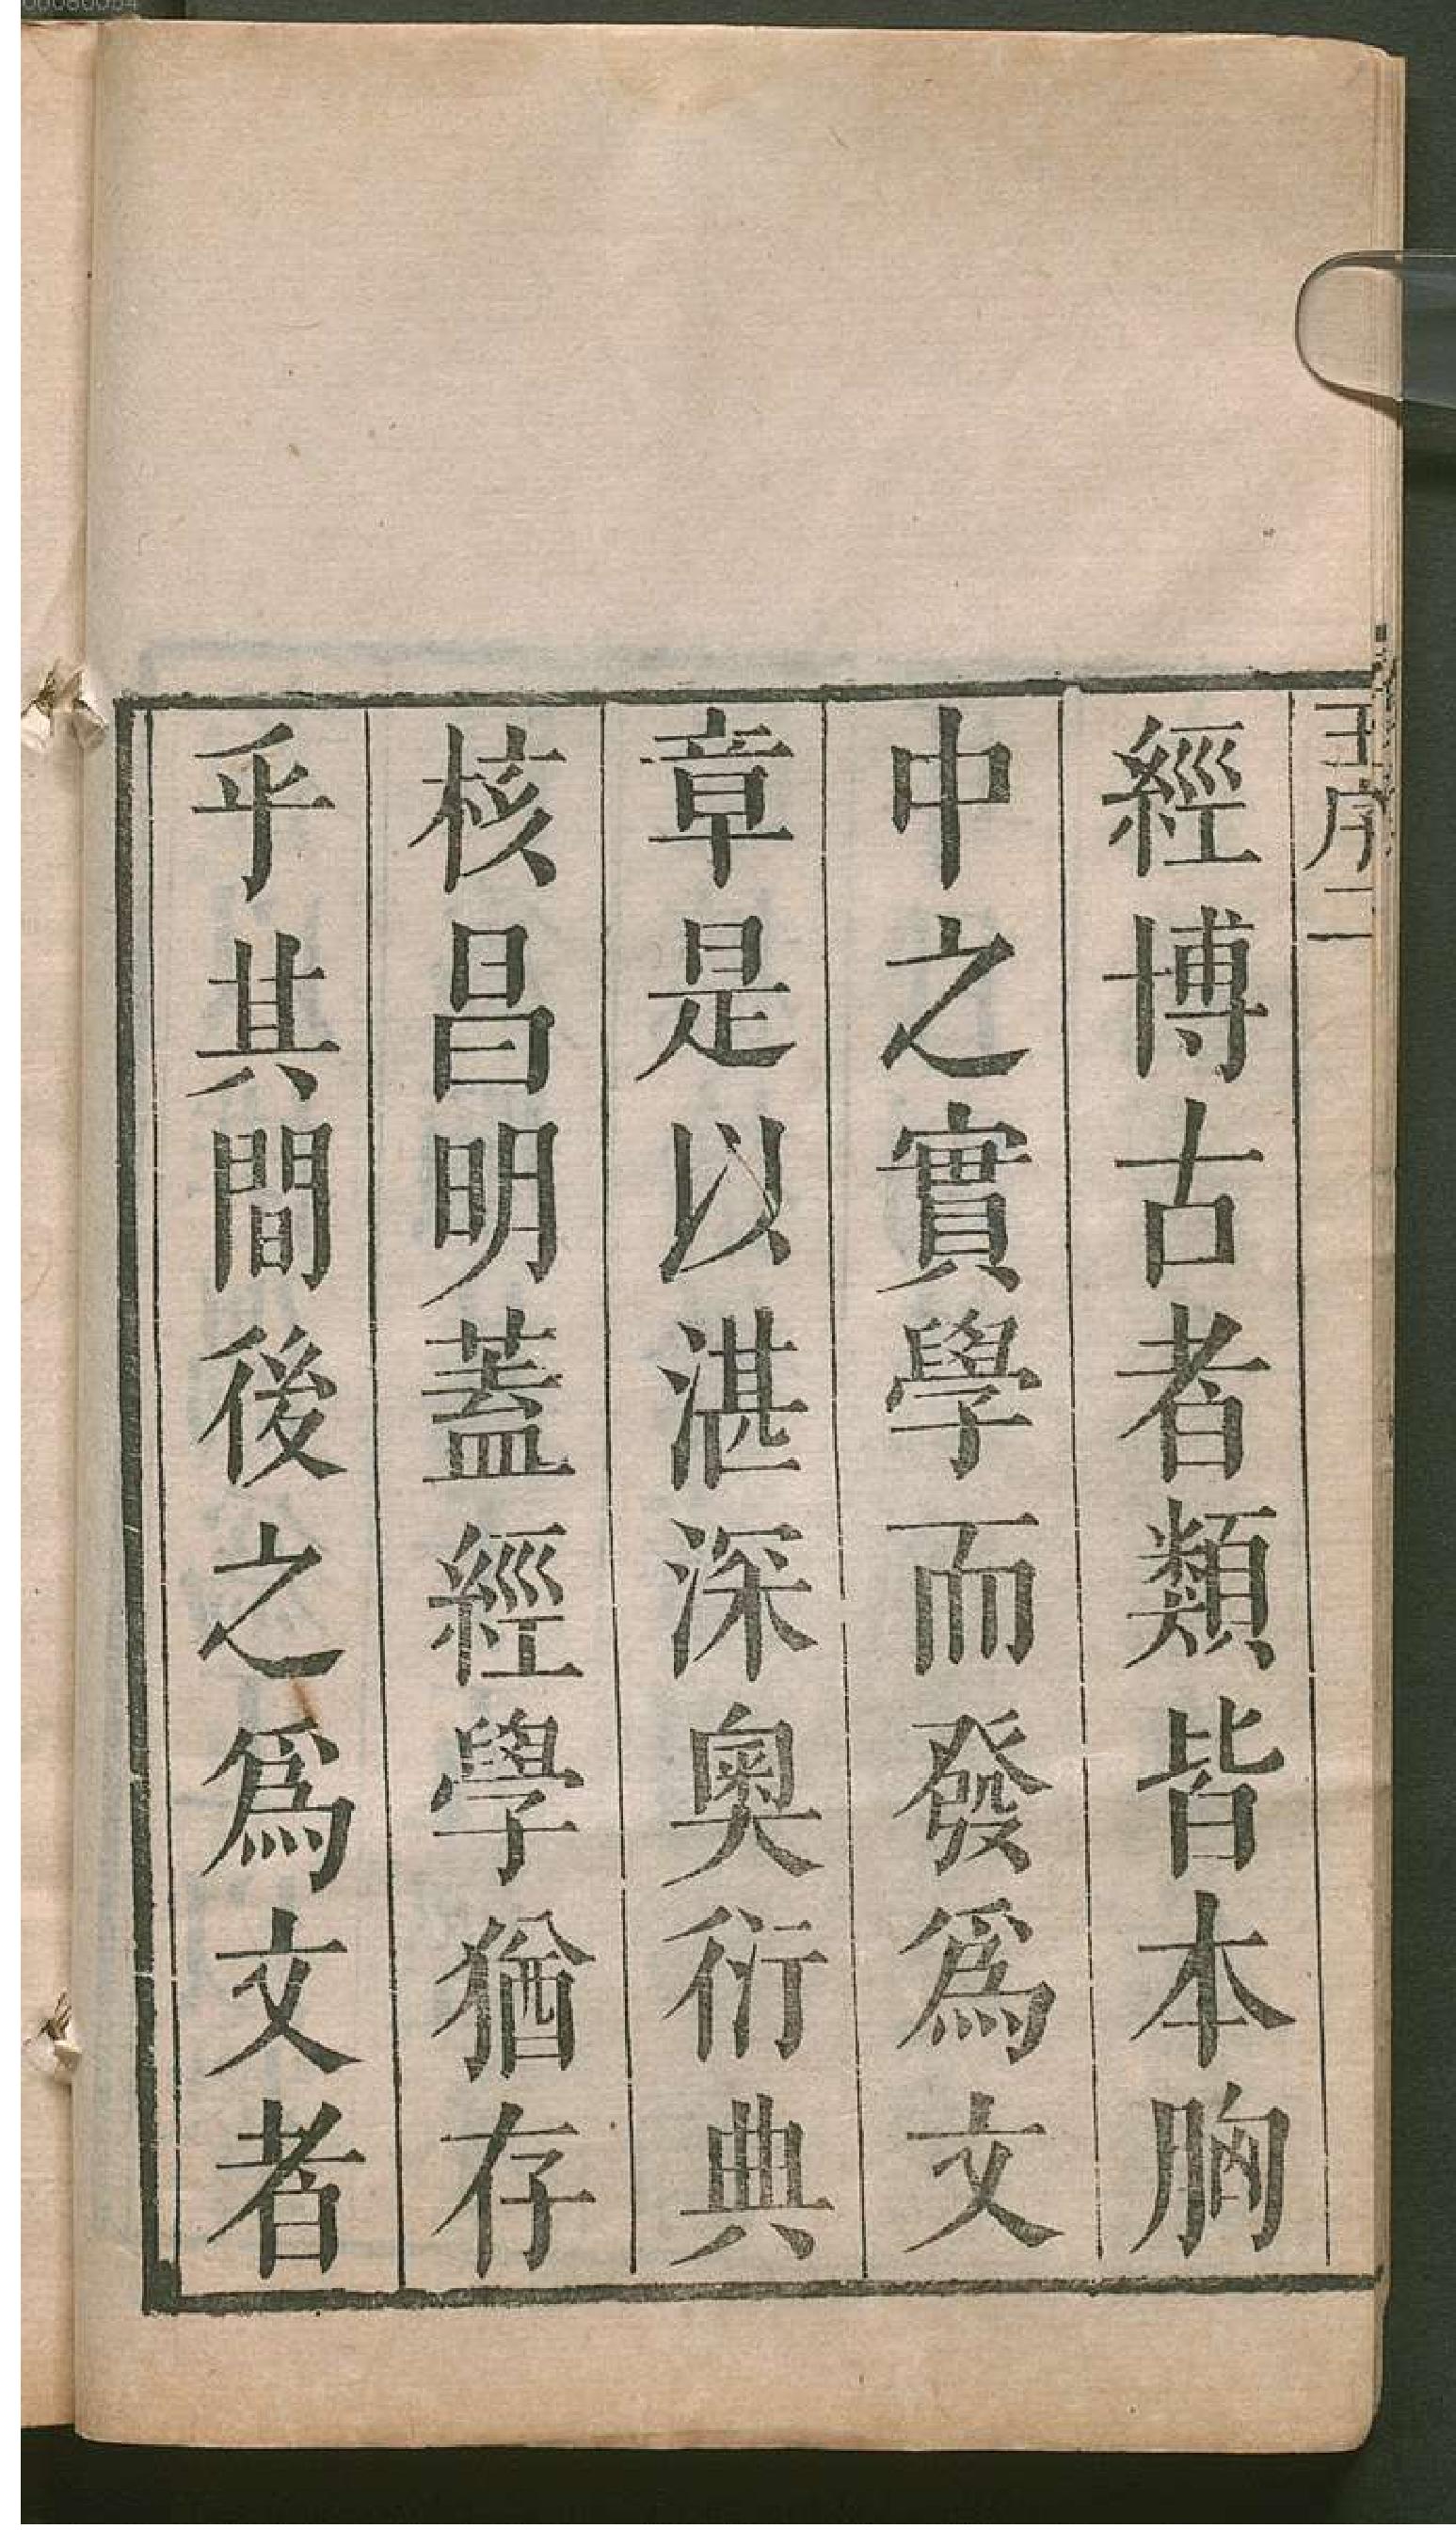 王序 二
經博古者類皆本胸
中之實學而發爲文
章是以湛深奧衍典
核昌明蓋經學猶存
乎其間後之爲文者